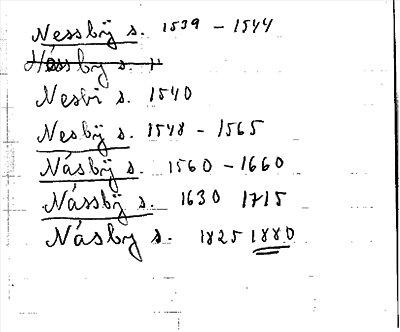 Nessbÿ s. 1539 – 1544
Nesbi s. 1540
Nesbÿ s. 1548 – 1565
Násbÿ s. 1560 – 1660
Nássbÿ s. 1630 1715
Násby s. 1825 1880